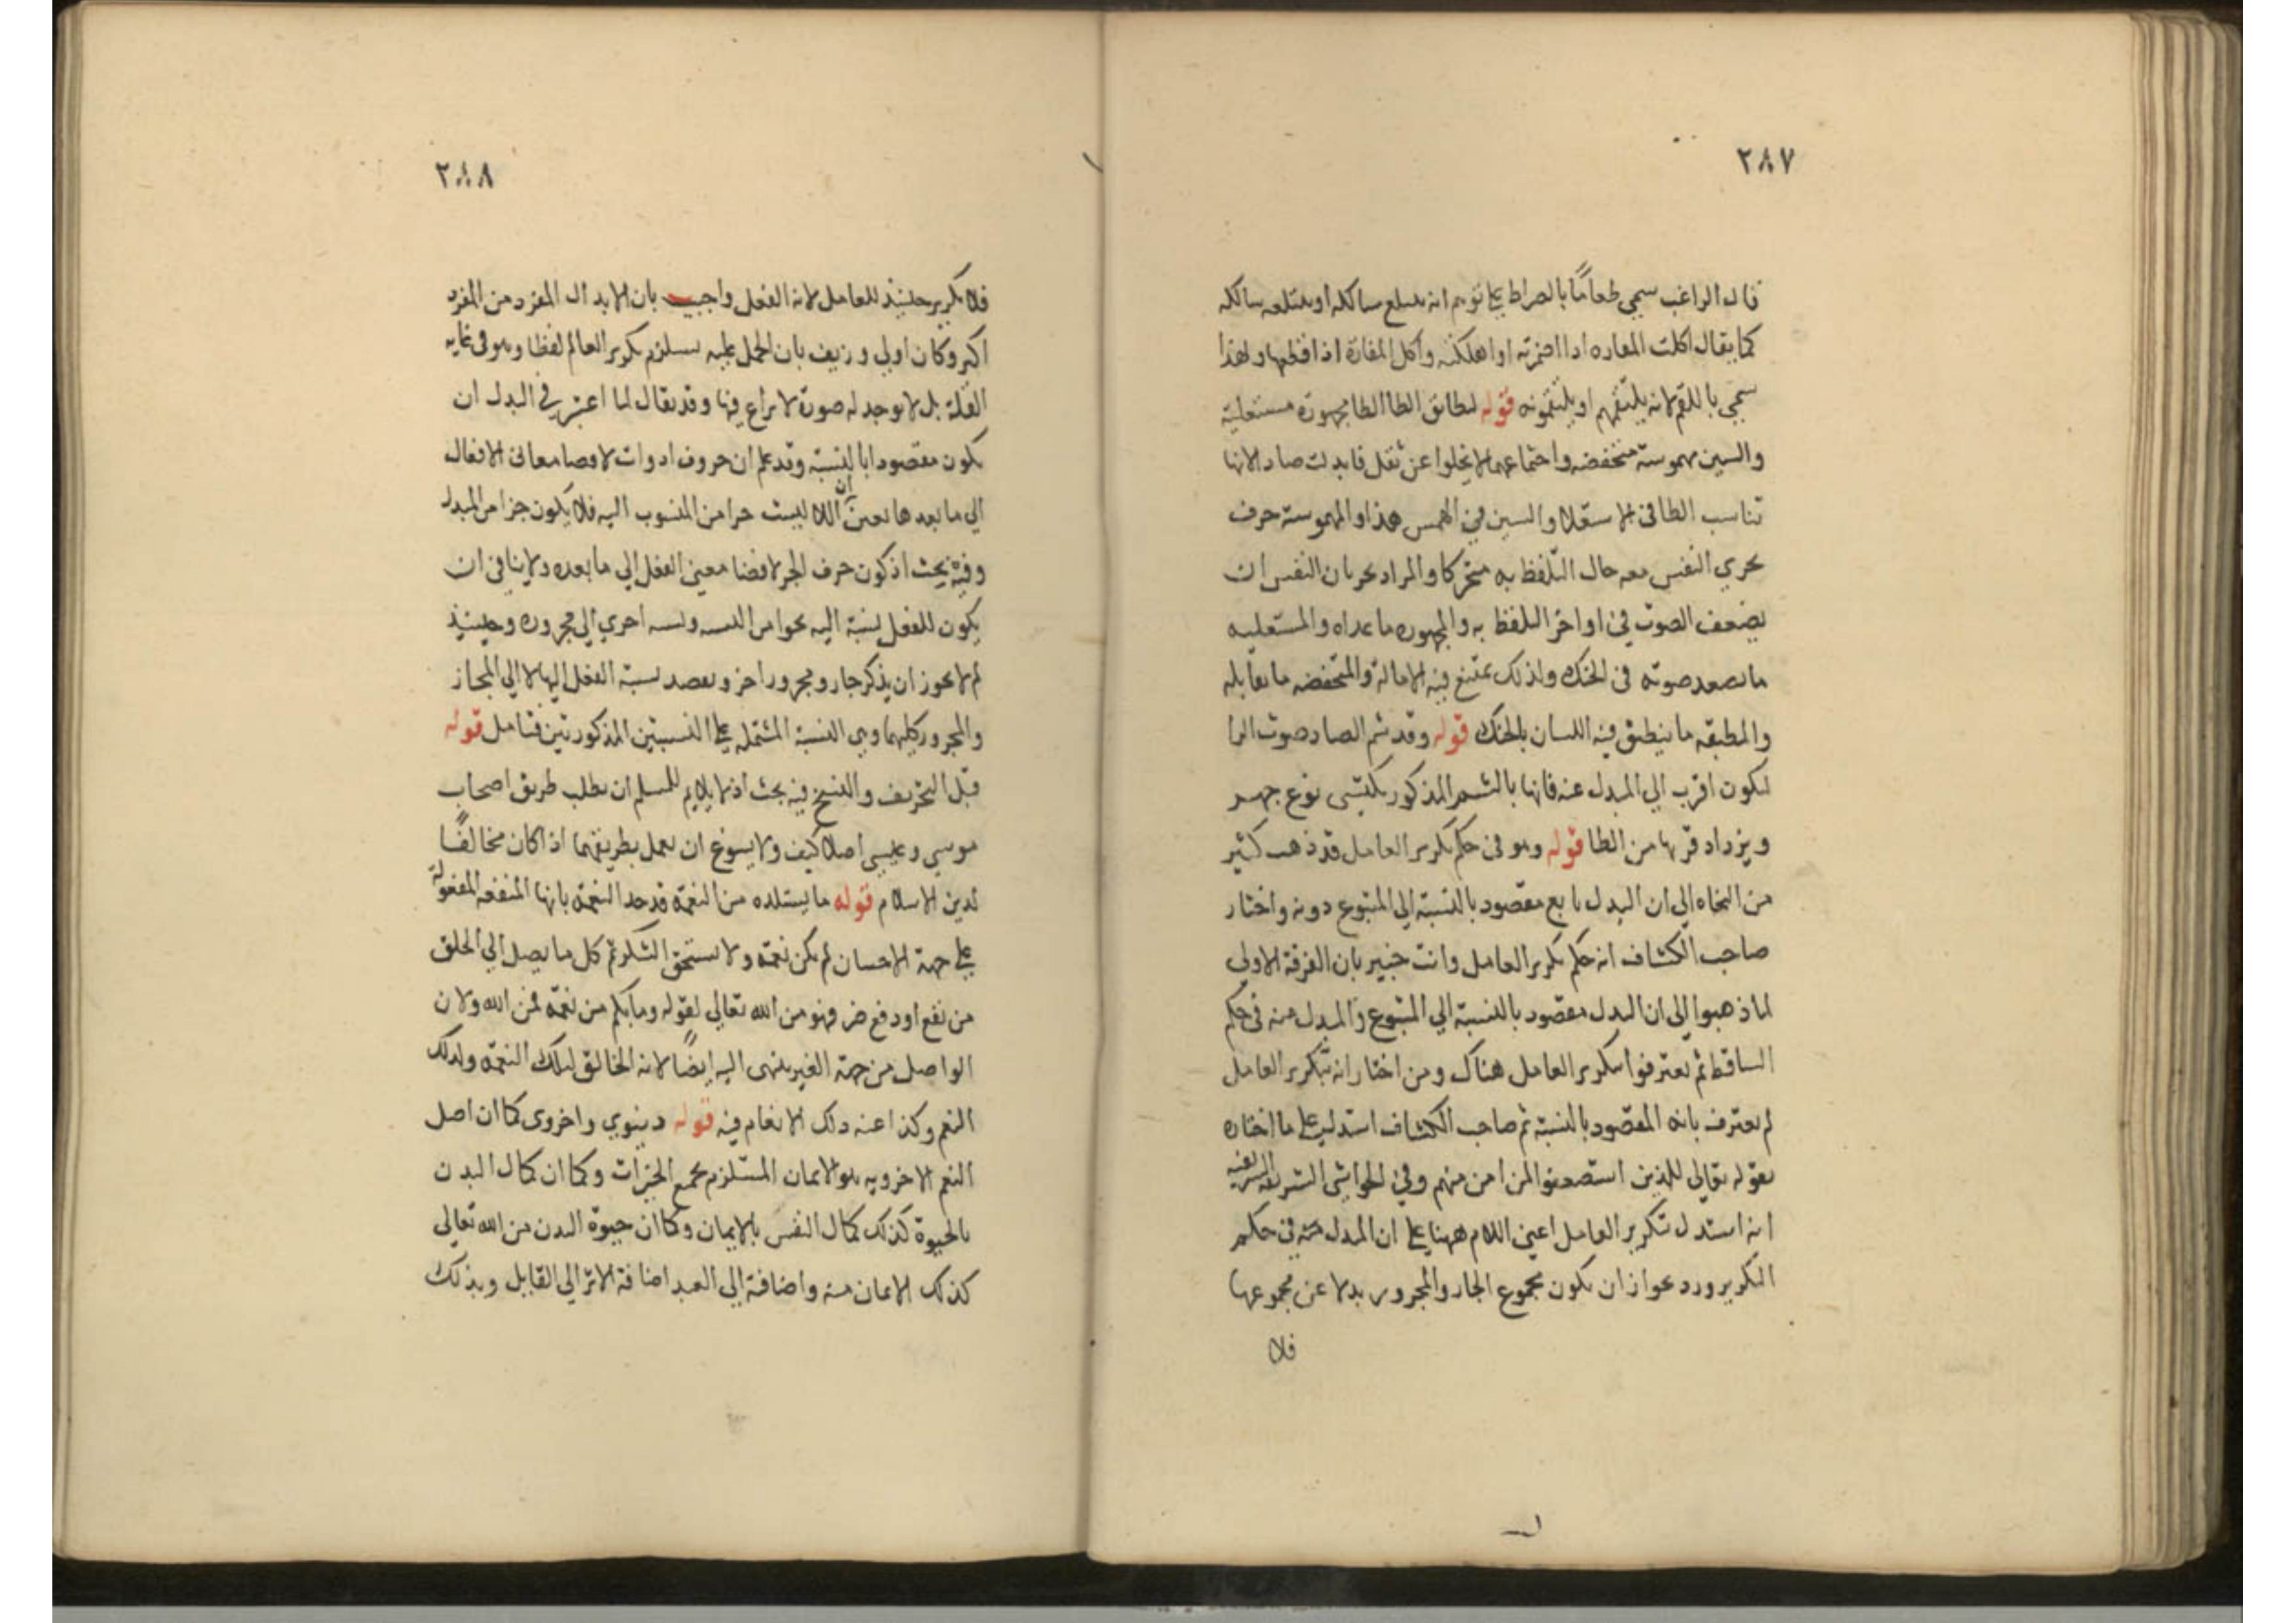 ٢٨٧
قال الراغب سمي طعامًا بالصراط على توهم انه يبتلع سالكه او يبتلعه سالكه
كما يقال اكلت المفازة اذا اضمرته او اهلكته واكل المفازة اذا قطعها ولهذا
سمي باللقم لانه يلتقمهم او يلتقمونه قوله ليطابق الطا الطا مجهورة مستعلية
والسين مهموسة منخفضه واجتماعهما لا يخلوا عن ثقل فابدلت صادا لانها
تناسب الطا في الاستعلا والسين في الهمس هذا والمهموسة حرف
يجري النفس معه حال التلفظ به متحركا والمراد بجريان النفس ان
يضعف الصوت في اواخر التلفظ به والمجهوره ما عداه والمستعليه
ما يصعد صوته في الحنك ولذلك يمتنع فيه الامالة والمنخفضه ما يقابله
والمطبقه ما ينطبق فيه اللسان بالحنك قوله وقد يشم الصاد صوت الزا
ليكون اقرب الي المبدل عنه فانها بالشم المذكور يكتسى نوع جهر
ويزداد قربها من الطا قوله وهو في حكم تكرير العامل قد ذهب كثير
من النحاه الي ان البدل تابع مقصود بالنسبة الي المتبوع دونه واختار
صاحب الكشاف انه حكم تكرير العامل وانت خبير بان الفرقة الاولي
لما ذهبوا الى ان البدل مقصود بالنسبة الي المتبوع والمبدل منه في حكم
الساقط لم يعترفوا بتكرير العامل هناك ومن اختار انه بتكرير العامل
لم يعترف بانه المقصود بالنسبة ثم صاحب الكشاف استدل على ما اختاره
بقوله تعالي للذين استضعفوا لمن امن منهم وفي الحواشي الشريفه
انه استدل بتكرير العامل اعنى اللام ههنا على ان المبدل منه في حكم
التكرير ورد بجواز ان يكون مجموع الجار والمجرور بدلا عن مجموعها
فلا
٢٨٨
فلا تكرير حينئذ للعامل لانه الفعل واجيب بان الابدال المفرد من المفرد
اكثر وكان اولي وزيف بان الحمل عليه يستلزم تكرير العامل لفظا وهو في غايه
القلة بل لا يوجد له صورة لا نزاع فيها وقد يقال لما اعتبر في البدل ان
يكون مقصودا بالنسبة وقد علم ان حروف ادوات لافضا معانى الافعال
الي ما بعدها تعين ان اللام ليست جزا من المنسوب اليه فلا يكون جزا من المبدل
وفيه بحث اذ كون حرف الجر لافضا معنى الفعل الي ما بعده لا ينافى ان
يكون للفعل نسبة اليه ونسبه اخري الي مجروره وحينئذ
لم لا يجوز ان يذكر جار ومجرور اخر ويقصد نسبة الفعل اليها لا الي المجاز
والمجرور كليهما وهي النسبة المشتمله على النسبتين المذكورتين فتامل قوله
قبل التحريف والنسخ فيه بحث اذ لا يلايم للمسلم ان يطلب طريق اصحاب
موسي وعيسى اصلا كيف ولا يسوغ ان يعمل بطريقهما اذا كان مخالفًا
لدين الاسلام قوله ما يستلذه من النعمة قد حد النعمة بانها المنفعه المفعولة
على جهة الاحسان لم يكن نعمة ولا يستحق الشكر ثم كل ما يصل الي الخلق
من نفع او دفع ضر فهو من الله تعالي لقوله وما بكم من نعمة فمن الله ولان
الواصل من جهة الغير ينتهى اليه ايضًا لانه الخالق لتلك النعمة ولذلك
النعم وكذا عنه ذلك الانعام فيه قوله دينوي واخروى كما ان اصل
النعم الاخرويه هو الايمان المستلزم بجميع الخيرات وكما ان كمال البدن
بالحيوة كذلك كمال النفس بالايمان وكما ان حيوة البدن من الله تعالي
كذلك الايمان منه واضافة الي العبد اضافة الاثر الي القابل وبذلك